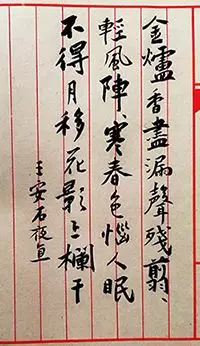 金爐香盡漏聲殘翦、
輕風陣、寒春色惱人眠
不得月移花影上欄干
王安石夜直